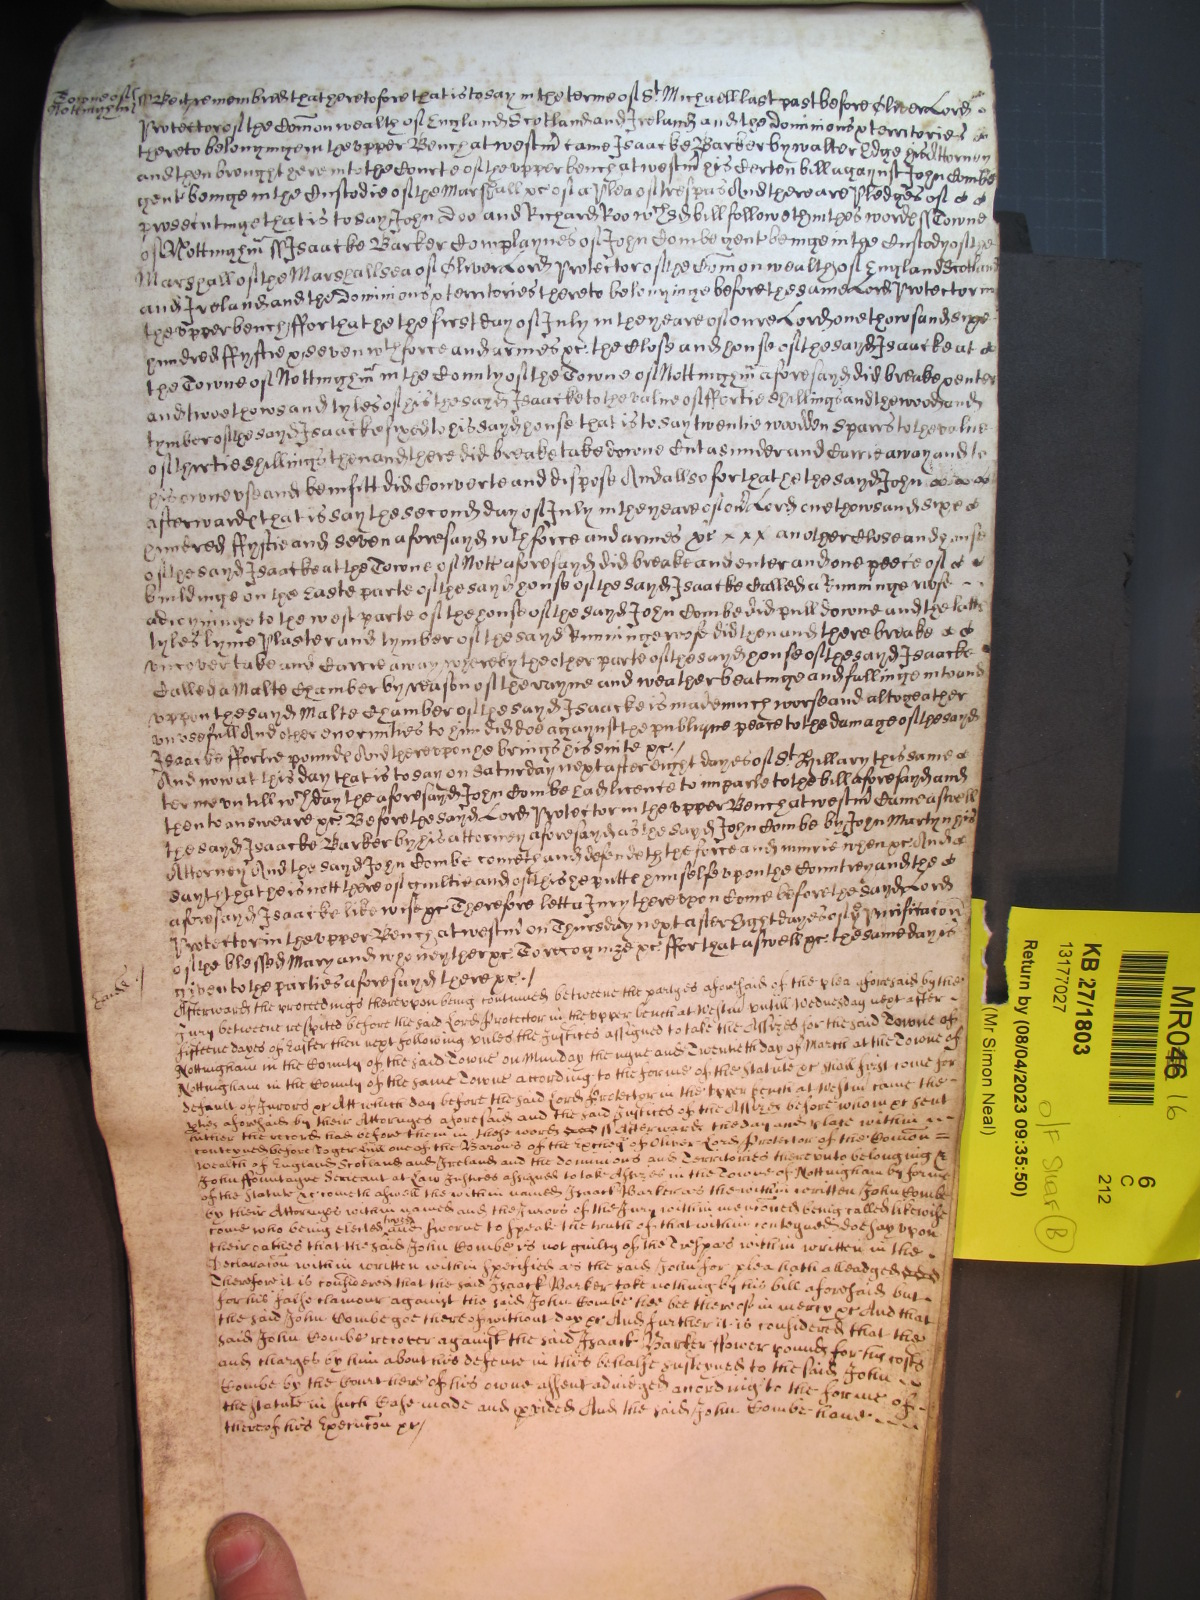 Towne of
Nottinghm̃
ss Be it remembred that heretofore that is to say in the terme of St Michaell last past before Oliver Lord
Protector of the Com̃onwealth of England Scotland and Ireland and the dominions & territories
thereto belonginge in the upper Bench at westm̃ came Isaacke Barker by walter Edge his Attorney
and then brought here into the Courte of the upper bench at westm̃ his Certen bill against John Combe
gent beinge in the Custodie of the Marshall &c of a Plea of trespas And there are Pledges of
prosecutinge that is to say John Doo and Richard Roo wch sd bill followeth in thes wordes ss Towne
of Nottinghm̃ ss Isaacke Barker Complaynes of John Combe gent beinge in the Custody of the
Marshall of the Marshallsea of Oliver Lord Protector of the Com̃onwealth of England Scotland
and Ireland and the dominions & territories thereto belonginge before the same Lord Protector in
the upper bench ffor that he the first day of July in the yeare of oure Lord one thowsand sixe
hundred ffyftie & seeven wth force and armes &c. the Close and house of the sayd Isaacke at
the Towne of Nottinghm̃ in the County of the Towne of Nottinghm̃ aforesayd did breake & enter
and twoe thowsand tyles of his the sayd Isaacke to the value of ffortie shillings and the wood and
tymber of the sayd Isaacke fixed to his sayd house that is to say twentie wooden sparrs to the value
of thirtie shillings then and there did breake take downe Cut asunder and Carrie away and to
his owne use and benifitt did Converte and dispose And allso for that he the sayd John
afterwards that is say the second day of July in the yeare of our Lord one thowsand sixe
hundred ffyftie and seven aforesayd wth force and armes &c x x x another Close and house
of the sayd Isaacke at the Towne of Nott aforesayd did breake and enter and one peece of
buildinge on the Easte parte of the sayd house of the sayd Isaacke Called a Runninge
adioyninge to the west parte of the house of the sayd John Combe did pull downe and the latts
tyles lyme Plaster and tymber of the sayd Runninge did then and there breake
uncover take and Carrie away whereby the other parte of the sayd house of the sayd Isaacke
Called a Malte Chamber by reason of the rayne and weather beatinge and fallinge into and
uppon the sayd Malte Chamber of the sayd Isaacke is made much worse and altogeather
unusefull And other enormities to him did doe against the publique peace to the damage of the sayd
Isaacke ffortie pounds And thereupon he brings his suite &c./
And now at this day that is to say on Saturday next after Eight dayes of St Hillary this same
terme untill wch day the aforesayd John Combe had licence to imparle to the bill aforesayd and
then to answeare &c Before the sayd Lord Protector in the upper Bench at westm̃ Came aswell
the sayd Isaacke Barker by his attorney aforesayd as the sayd John Combe by John Martyn his
Attorney And the sayd John Combe cometh and defendeth the force and iniurie when &c. And
sayth that he is nott thereof guiltie and of this he putts himselfe upon the Countrey and the
aforesayd Isaacke likewise &c Therefore lett a Jury thereupon Come before the sayd Lord
Protector in the upper Bench at westm̃ on Thursday next after Eight dayes of the Purificac̃on
of the blessed Mary and who neyther &c To recognize &c ffor that aswell &c. the same day is
given to the parties aforesayd there &c./
Afterwards the proceedings thereupon being continued betweene the partyes aforesaid of the plea aforesaid by the
Jury betweene respited before the said Lord Protector in the upper bench at Westm̃ untill Wednesday next after
fifteene dayes of Easter then next following unles the Justices assigned to take the Assizes for the said Towne of
Nottingham in the County of the said Towne on Munday the nyne and Twentieth day of March at the Towne of
Nottingham in the County of the same Towne according to the forme of the Statute &c shall first come for
default of Jurors &c Att which day before the said Lord Protector in the upper bench at Westm̃ came the
ptyes aforesaid by their Attorneys aforesaid and the said Justices of the Assizes before whom &c sent
hither the record had before them in these words ss Afterwards the day and place within
conteyned before Roger Hill one of the Barons of the Excheqr of Oliver Lord Protector of the Com̃on=
wealth of England Scotland and Ireland and the dominions and Territories thereunto belonging &
John ffountayne Serieant at Law Justices assigned to take Assizes in the Towne of Nottingham by forme
of the Statute &c cometh aswell the within named Isaack Barker as the within written John Combe
by their Attorneys within named and the Jurors of the Jury within menc̃oned being called likewise
come who being elected tryed and sworne to speake the truth of that within conteyned doe say upon
their oathes that the said John Combe is not guilty of the Trespas within written in the
Declarac̃on within written within specified as the said John for plea hath alleadged
Therefore it is considered that the said Isaack Barker take nothing by his bill aforesaid but
for his false clamour against the said John Combe hee bee thereof in mercy &c And that
the said John Combe goe thereof without day &c And further it is considered that the
said John Combe recover against the said Isaack Barker ffower pounds for his costs
and charges by him about his defence in this behalfe susteyned to the said John
Combe by the Court here of his owne assent adiudged according to the forme of
the statute in such Case made and p̱vided And the said John Combe have
thereof his Execuc̃on &c/
MR046 16
KB 27/1803
13177027
Return by (08/04/2023 09:35:50)
(Mr Simon Neal)
6
C
212
O/F Shelf (B)